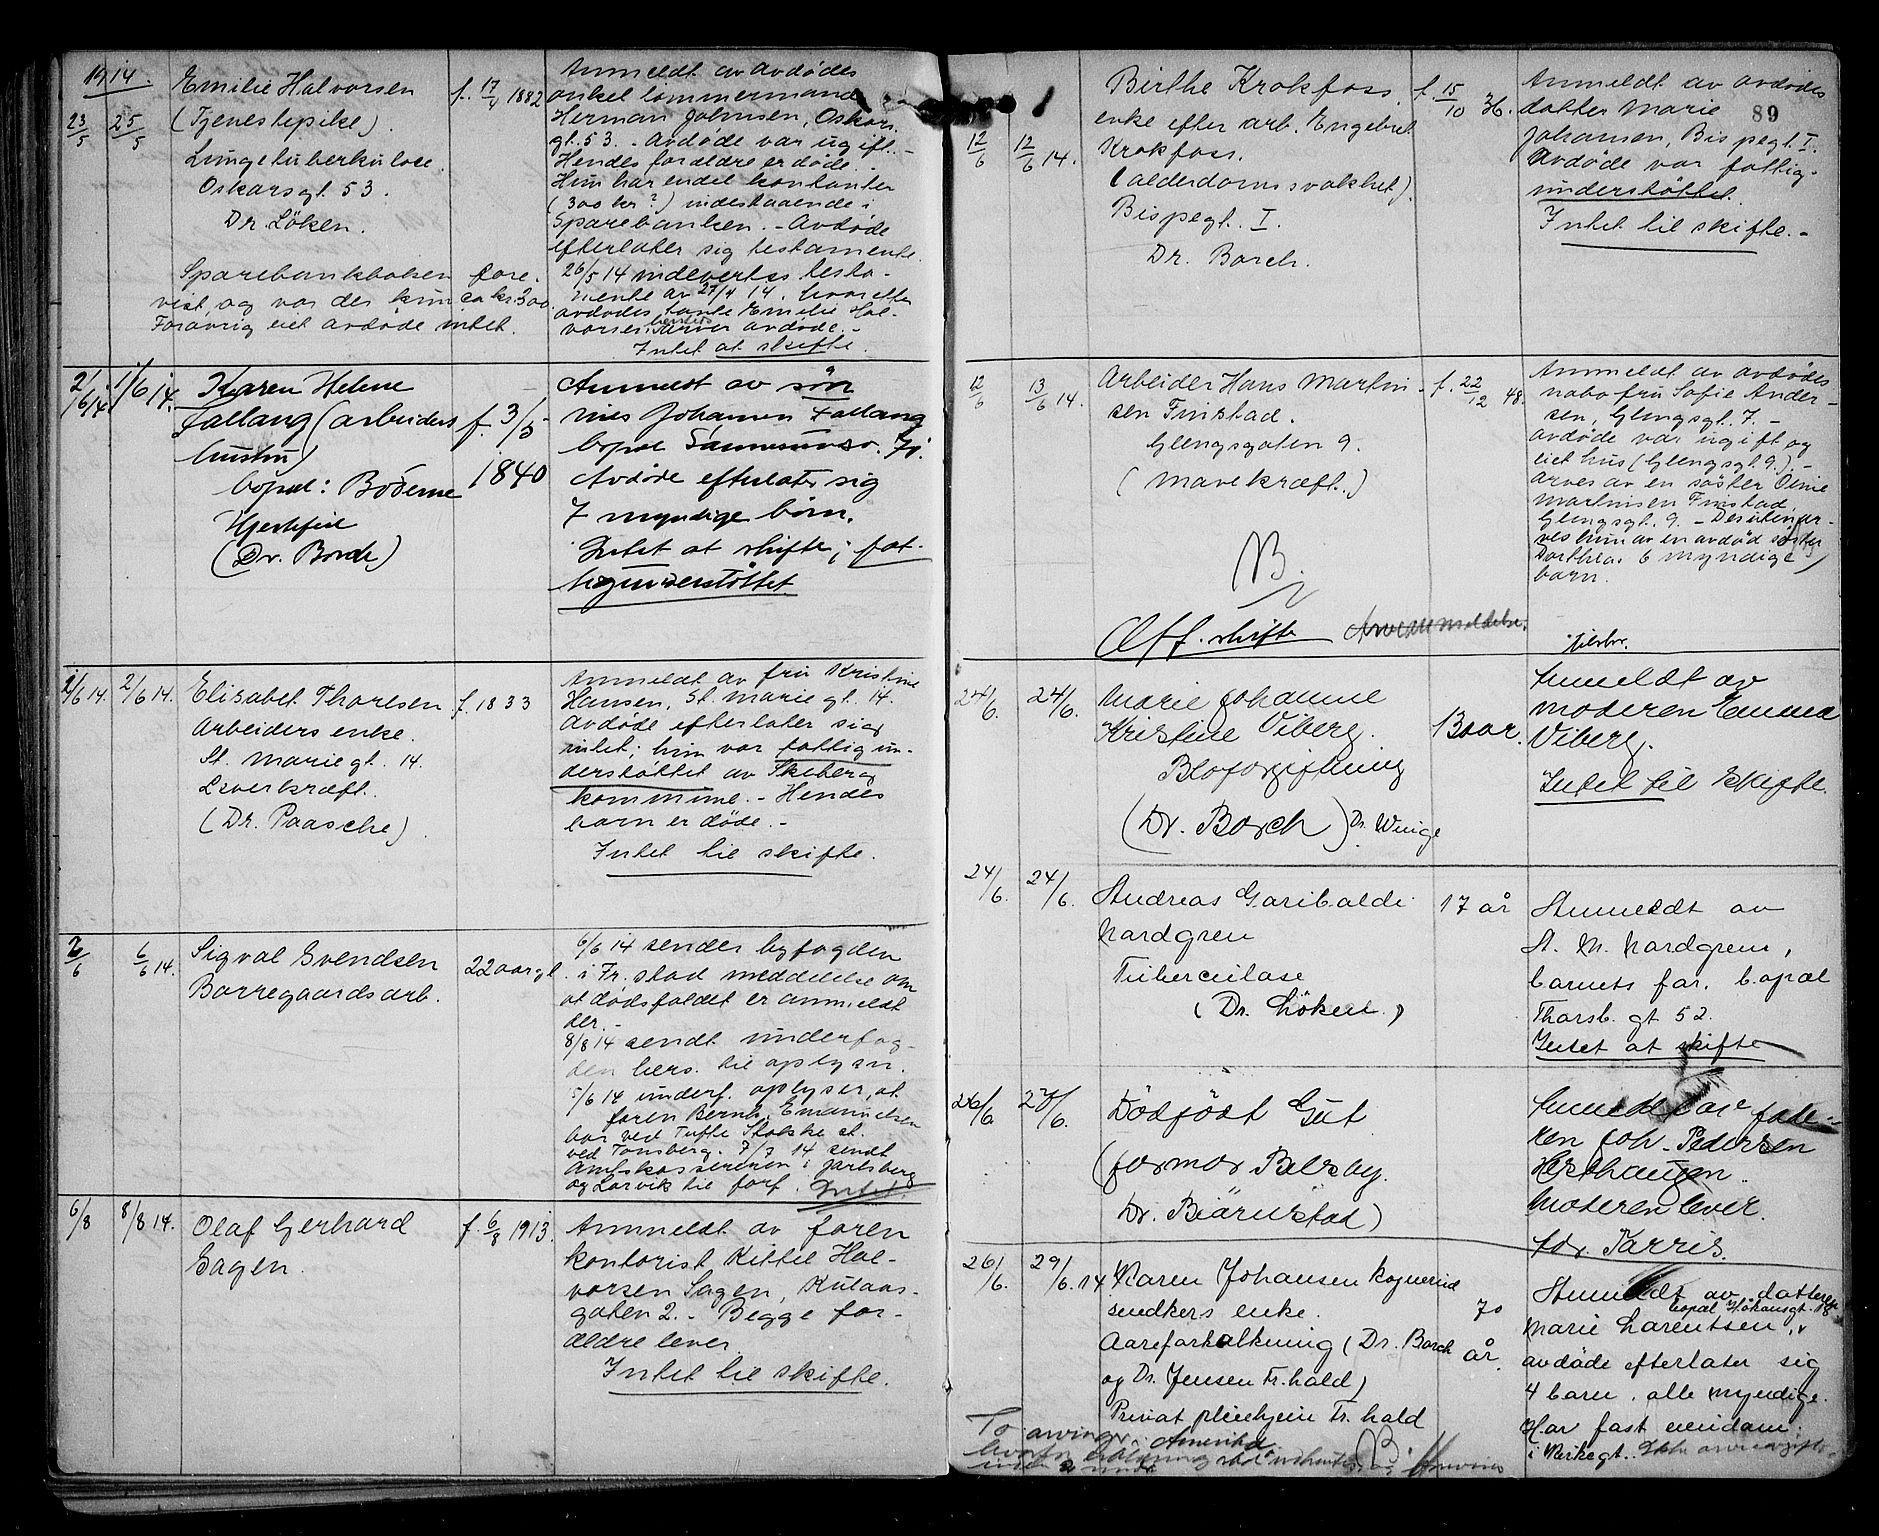 1914.
23/5 25/5
Emilie Halvorsen
(Tjenestepike)
Lungetuberkulose.
Oskarsgt. 53.
Dr Löken.
Sparebankboken fore-
vist, og var der kun ca kr. 300
Forøvrig eiet avdøde intet.
f. 17/4 1882
Anmeldt av avdødes
onkel tømmermand
Herman Johnsen, Oskars.
gt. 53. - Avdøde var ugift. -
Hendes forældre er døde. -
Hun har endel kontanter
(300 kr?) indestaaende i
Sparebanken. - Avdøde
efterlater sig testamente.
26/5 14 indlevertes testa-
mente av 27/4 14, hvorefter
avdødes tante Emilie Hal-
vorsen arver avdøde. -
Intet at skifte.
2/6 14 1/6 14.
Karen Helene
Fallang (arbeiders
hustru)
bopæl: Bøderne
Hjertefeil
(Dr. Borch)
f. 3/5
1840
Anmeldt av søn
nes Johannes Fallang
bopæl Sannesund
Avdøde efterlater sig
7 myndige børn.
Intet at skifte; fat-
tigunderstøttet
2/6 14. 2/6 14.
Elisabet Thoresen
Arbeiders enke.
St. Marie gt. 14.
Leverkræft.
(Dr. Paasche)
f. 1833
Anmeldt av fru Kristine
Hansen, St. Marie gt. 14.
Avdøde efterlater sig
intet; hun var fattigun-
derstøttet av Skeberg
kommune. - Hendes
barn er døde. -
Intet til skifte.
2/6 6/6 14.
Sigval Evendsen
Borregaardsarb.
22 aar gl.
6/6 14 sender byfogden
i Fr.stad meddelelse om
at dødsfaldet er anmeldt
der. -
8/8 14 sendt underfog-
den hers. til oplysn.
underf. oplyser, at
faren Bernh. Emanuelsen
bor ved Tufte
ved Tønsberg. 7/7 14 sendt
Amtskassereren i Jarlsberg
og Larvik til forf. Intet.
6/8 8/8 14.
Olaf Gerhard
Sagen.
f. 6/8 1913.
Anmeldt av faren
kontorist Kittil Hal-
vorsen Sagen, Kulaas-
gaten 2. - Begge for-
ældre lever.
Intet til skifte.
89
12/6 12/6 14.
Birthe Krokfoss
enke efter arb. Engebret
Krokfoss.
(alderdomssvakhet)
Bispegt. I.
Dr. Borch.
f. 15/10
Anmeldt av avdødes
datter Marie
Johansen, Bispegt. I.
Avdøde var fattig-
understøttet.
Intet til skifte. -
12/6 13/6 14.
Arbeider Hans Martin-
sen Finstad.
Glengsgaten 9.
(Mavekræft.)
B.
Off. skifte Arveanmeldelse.
f. 22/12 48.
Anmeldt av avdødes
nabo fru Sofie Ander-
sen, Glengsgt. 7. -
Avdøde var ugift og
eiet hus (Glengsgt. 9.). -
Arves av en søster Oline
Martinsen Finstad,
Glengsgt. 9. - Desuten ar-
ves hun av en avdød søster
Dorthea's 6 myndige
barn.
24/6. 24/6.
Marie Johanne
Kristine Viberg.
Bloforgiftning
(Dr. Borch) Dr. Winge
13 aar.
Anmeldt av
moderen Emma
Viberg.
Intet til skifte.
24/6. 24/6.
Andreas Garibalde
Nordgren
Tuberculose
(Dr. Löken.)
17 år
Anmeldt av
A. M. Nordgren,
barnets far, bopæl
Thorsb. gt 52.
Intet at skifte
26/6. 27/6.
Dödfödt Gut
(formor Belsby.
Dr. Björnstad)
Anmeldt av fade-
ren Joh. Pedersen
Moderen lever.
26/6. 29/6. 14.
Karen Johansen
snedkers enke.
Aareforkalkning (Dr. Borch
og Dr. Jensen Fr.hald)
Privat pleiehjem Fr. hald
70
år.
Anmeldt av datteren
Marie Larentsen,
avdöde efterlater sig
4 barn, alle myndige.
Har fast eiendom
i Kirkegt.
To arvinger i Amerika